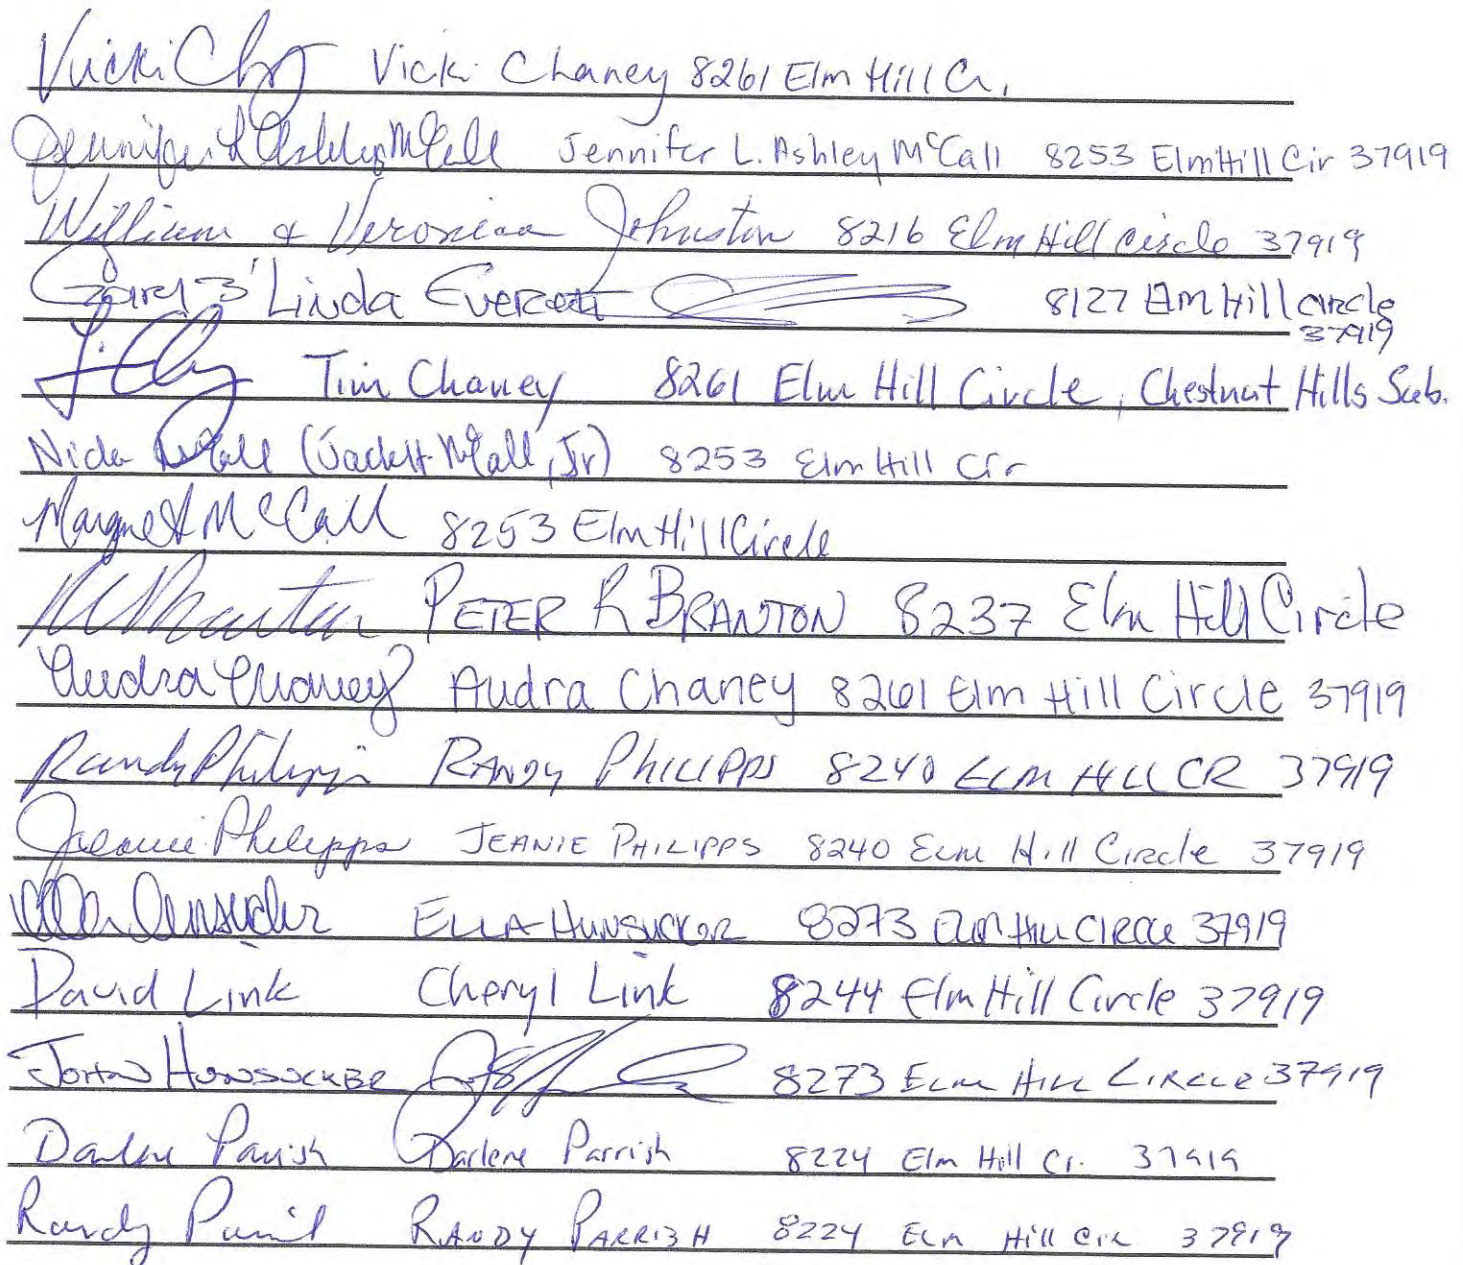 Vicki Chy Vicki Chaney 8261 Elm Hill Cr.
Jennifer L Ashley McCall Jennifer L. Ashley McCall 8253 Elm Hill Cir 37919
William & Veronica Johnston 8216 Elm Hill Circle 37919
Gary & Linda Everett 8127 Elm Hill Circle
37919
Tim Chaney 8261 Elm Hill Circle, Chestnut Hills Sub.
Nida McCall (Jack H. McCall, Jr) 8253 Elm Hill Cir
Margaret McCall 8253 Elm Hill Circle
PETER R BRANTON 8237 Elm Hill Circle
Audra Chaney Audra Chaney 8261 Elm Hill Circle 37919
Randy Philipps RANDY PHILIPPS 8240 ELM HILL CR 37919
Jeanie Philipps JEANIE PHILIPPS 8240 Elm Hill Circle 37919
Ella Hunsucker ELLA HUNSUCKER 8273 Elm Hill CIRCLE 37919
David Link Cheryl Link 8244 Elm Hill Circle 37919
JOHN HUNSUCKER 8273 ELM HILL CIRCLE 37919
Darlene Parrish Darlene Parrish 8224 Elm Hill Cr. 37919
Randy Parrish RANDY PARRISH 8224 ELM Hill Cir 37919